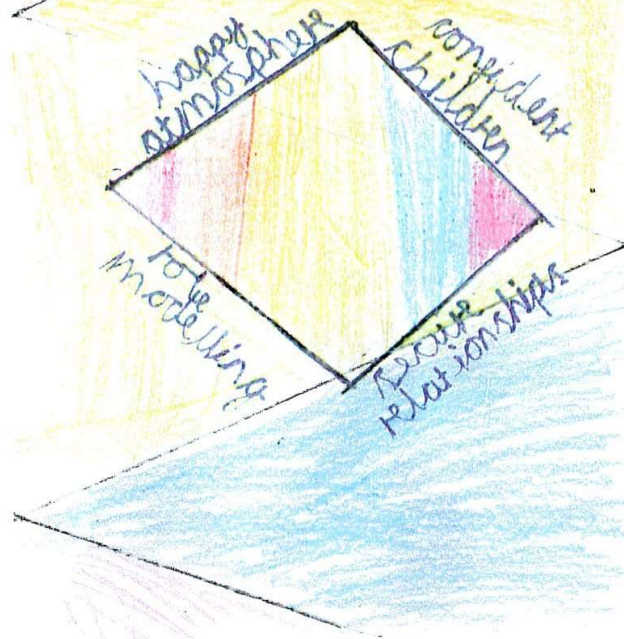 happy
atmosphere
confident
children
role
modelling
secure
relationships